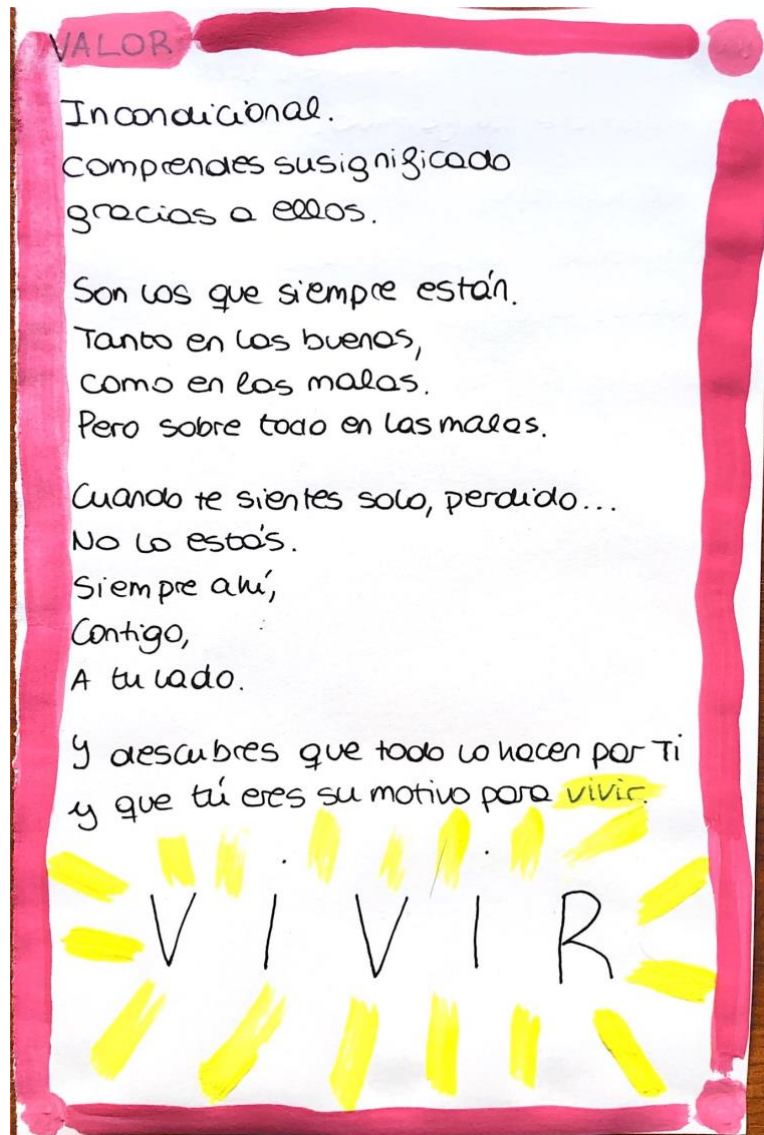 VALOR
Incondicional.
Comprendes su significado
gracias a ellos.
Son los que siempre están.
Tanto en las buenas,
como en las malas.
Pero sobre todo en las malas.
Cuando te sientes solo, perdido...
No lo estás.
Siempre ahí,
Contigo,
A tu lado.
Y descubres que todo lo hacen por Ti
y que tú eres su motivo para vivir.
VIVIR